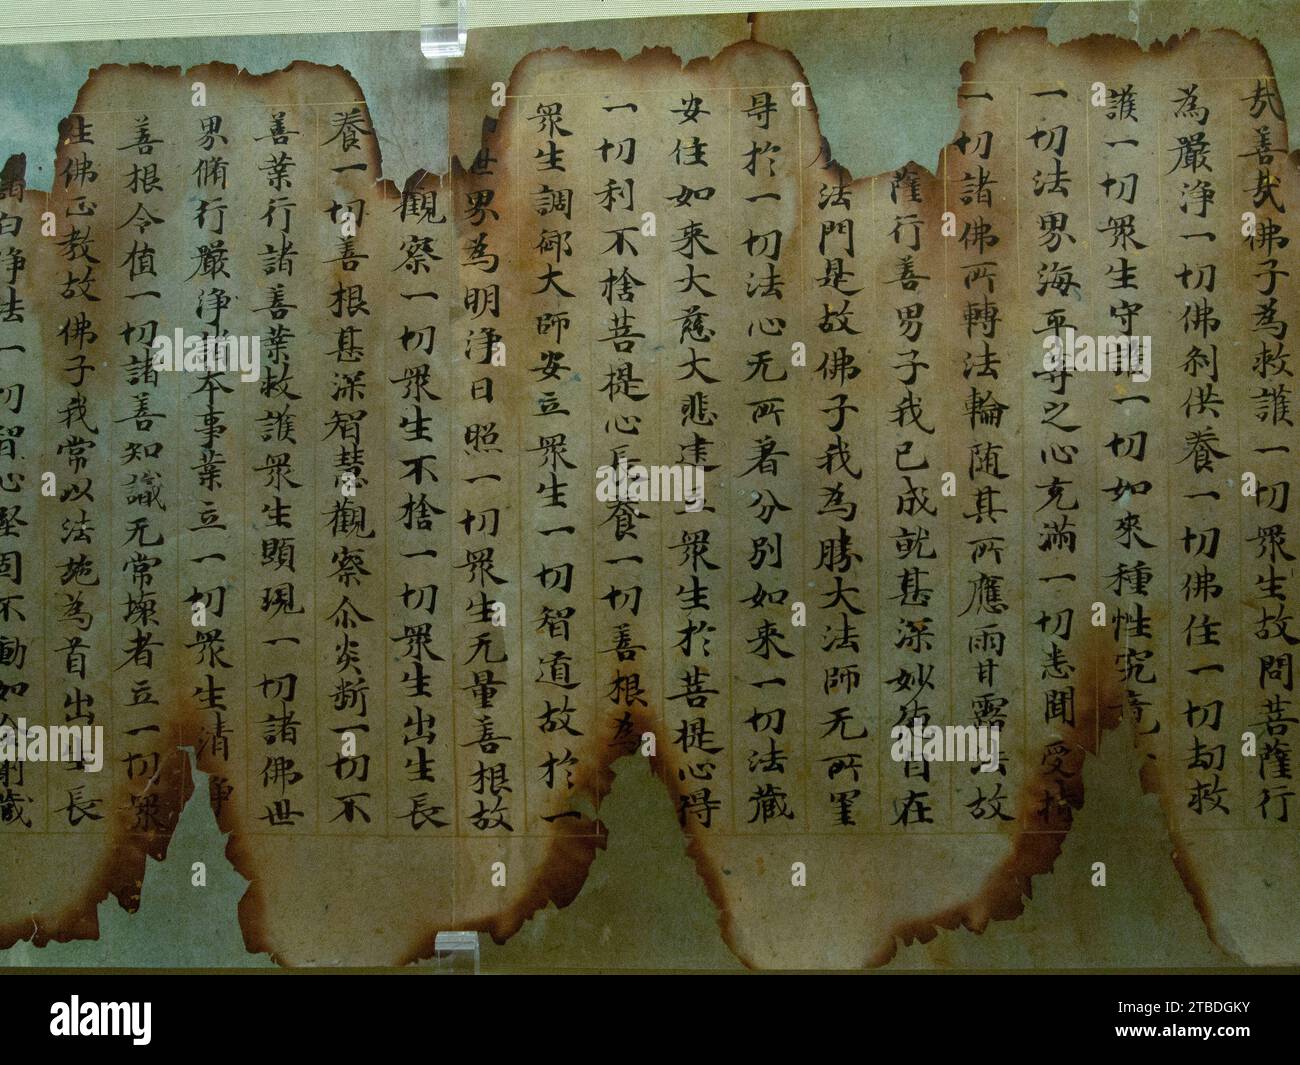 哉善哉佛子為救護一切眾生故問菩薩行
為嚴淨一切佛剎供養一切佛住一切劫救
護一切眾生守護一切如來種性究竟
一切法界海平等之心充滿一切悉聞受持
一切諸佛所轉法輪随其所應雨甘露法故
薩行善男子我已成就甚深妙德自在
法門是故佛子我為勝大法師无所罣
㝵於一切法心无所著分別如来一切法藏
安住如来大慈大悲建立眾生於菩提心得
一切利不捨菩提心長養一切善根為
眾生調御大師安立眾生一切智道故於一
世界為明淨日照一切眾生无量善根故
觀察一切眾生不捨一切眾生出生長
養一切善根甚深智慧觀察尒炎断一切不
善業行諸善業救護眾生顯現一切諸佛世
界脩行嚴淨諸夲事業立一切眾生清淨
善根令值一切諸善知識无常壞者立一切眾
生佛正教故佛子我常以法施為首出生長
諸白淨法一切智心堅固不動如金剛藏
alamy
Image ID: 2TBDGKY
www.alamy.com